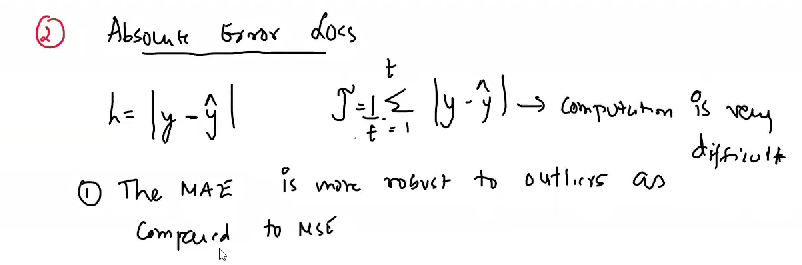 ② Absolute Error Loss
L = |y - ŷ| J = 1/t Σ i=1 t |y - ŷ| → Computation is very difficult
① The MAE is more robust to outliers as
Compared to MSE